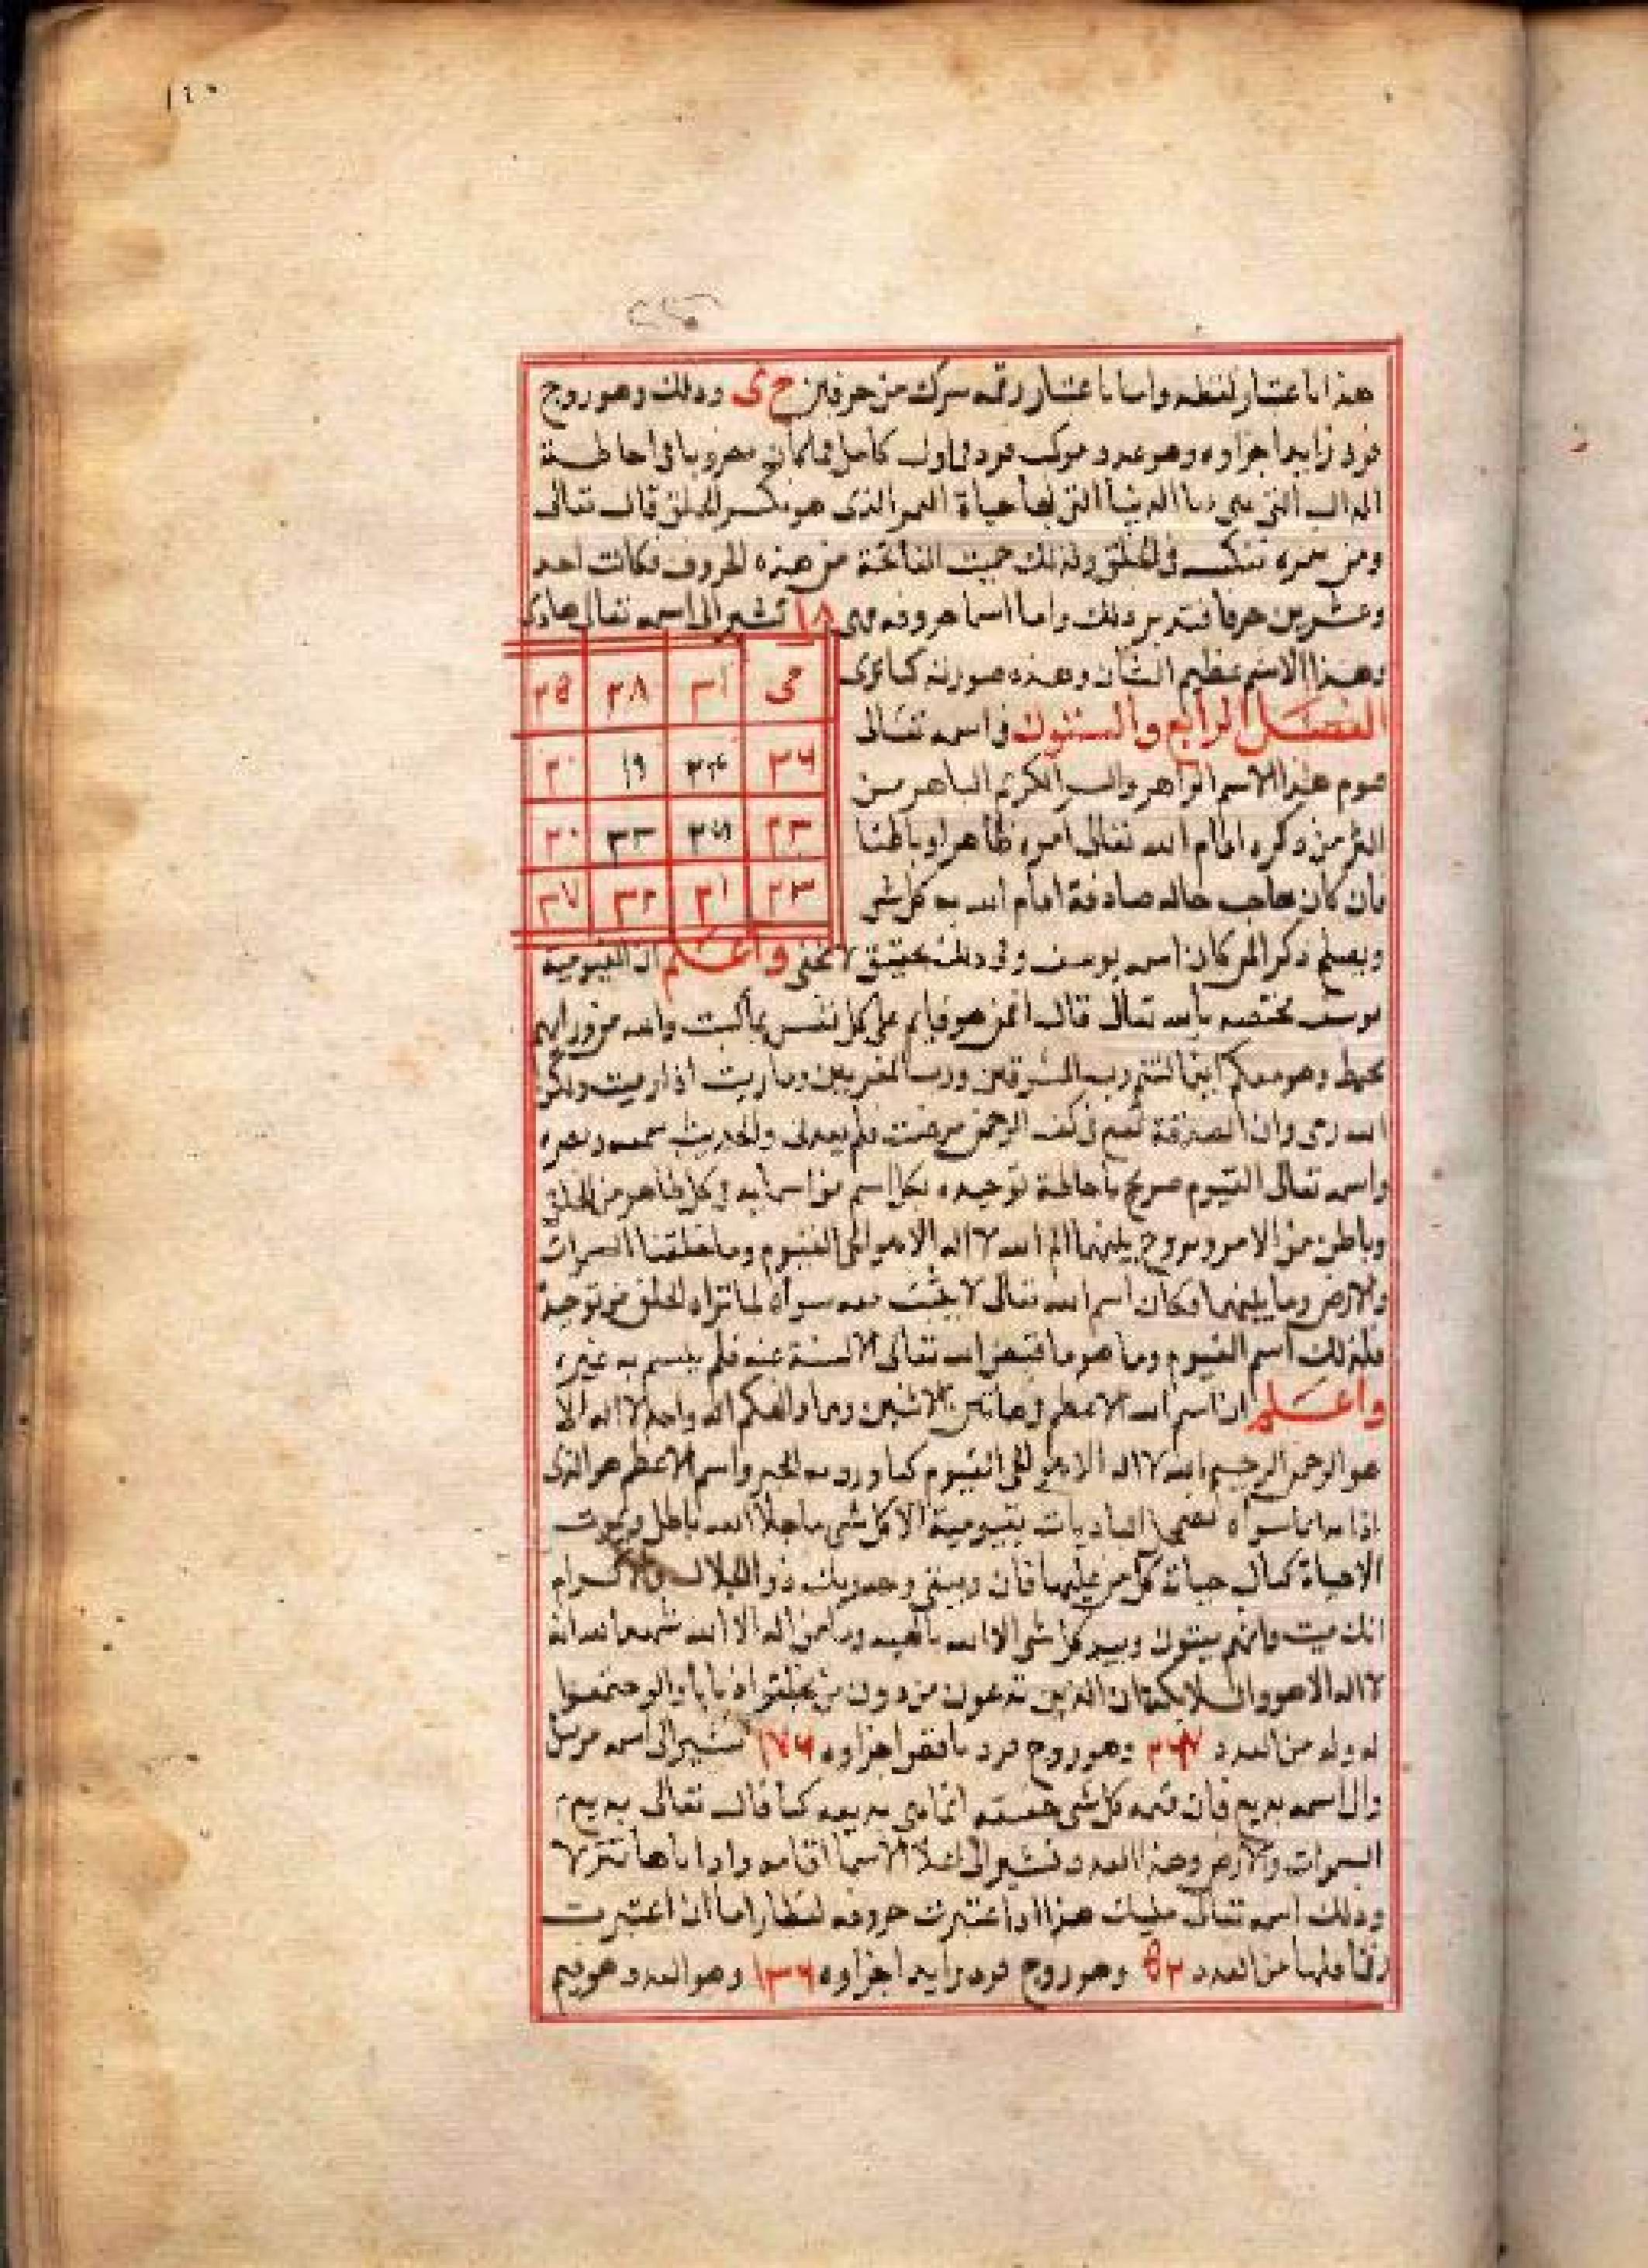 ١٤٠
هذا باعتبار لفظه واما باعتبار رقمه مركب من حرفين ح ى وذلك وهو زوج
فرد زايد اجزاوه وهو عدد مركب فرد اول كامل مضروبا فى احاطة
الدال التى هى الدنيا التى لها حياة العمر الذى هو تنكس الخلق قال تعالى
ومن نعمره ننكسه فى الخلق ولذلك حميت الفاتحة من هذه الحروف فكانت احد
وعشرين حرفا فتدبر ذلك واما اسما حروفه فهى ١٨ تشير الى اسمه تعالى هادى
وهذا الاسم عظيم الشان وهذه صورته كما ترى
حى ٢١ ٢٨ ٢٥
٢٦ ٢٤ ١٩ ٢٠
٢٣ ٣٣ ٢٠
٢٣ ٢١ ٣٢ ٢٧
الفصل الرابع والستون فى اسمه تعالى
قيوم هذا الاسم الزاهر والسر الكريم الباهر من
اكثر من ذكره اقام الله تعالى امره ظاهرا وباطنا
فان كان صاحب حاله صادقة اقام الله به كل شى
ويصلح ذكرا لمن كان اسمه يوسف وفى ذلك تحقيق لا يخفى واعلم ان القيومية
مختصه بالله تعالى قال افمن هو قايم على كل نفس بما كسبت والله من ورايهم
محيط وهو معكم اينما كنتم رب المشرقين ورب المغربين وما رميت اذ رميت ولكن
الله رمى وان الصدقة تقع فى كف الرحمن مرضت فلم تعدنى والحديث سمعه وبصره
واسمه تعالى القيوم صريح باحاطة توحيده بكل اسم من اسمايه فى كل ظاهر من الخلق
وباطن من الامر وبروح بينهما الم الله لا اله الا هو الحى القيوم وما خلقنا السموات
والارض وما بينهما فكان اسم الله تعالى لا يثبت معه سواه لما تراه الخلق من توحيد
فلذلك اسم القيوم وما هو ما قبض الله تعالى الالسنة عنه فلم يتسم به غيره
واعلم ان اسم الله الاعظم فى هاتين الاثنين وهما والهكم اله واحد لا اله الا
هو الرحمن الرحيم الله لا اله الا هو الحى القيوم كما ورد به الخبر واسمه الاعظم هو الذى
اذا بدا ما سواه الباديات بقيومية الا كل شى ما خلا الله باطل
الاحياة كمال حياته كل من عليها فان ويبقى وجه ربك ذو الجلال والاكرام
انك ميت وانهم ميتون كل شى الا الله وما من اله الا الله شهد الله انه
لا اله الا هو والملايكة ان الذين تدعون من دون الله لن يخلقوا ذبابا ولو اجتمعوا
له وله من العدد وهو زوج فرد ناقص اجزاوه ١٧٦ تشير الى اسمه
والى اسمه بديع فان قيمة كل شى انما هى بديعه كما قال تعالى بديع
السموات والارض وهذا العدد تشير الى الاسما
وذلك اسمه تعالى مليك هذا اذا اعتبرت حروفه لفظا واما ان اعتبرت
رقما فلها من العدد وهو زوج فرد زايد اجزاوه ١٣٦ وهو العدد هو قيم